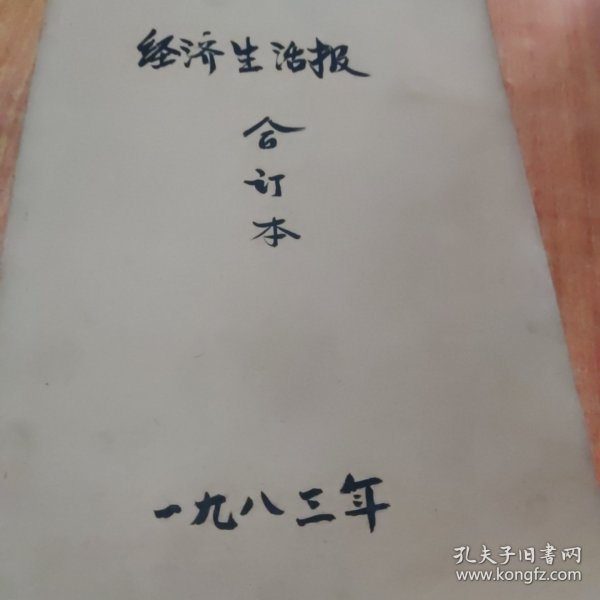 经济生活报
合
订
本
一九八三年
孔夫子旧書网
www.kongfz.com